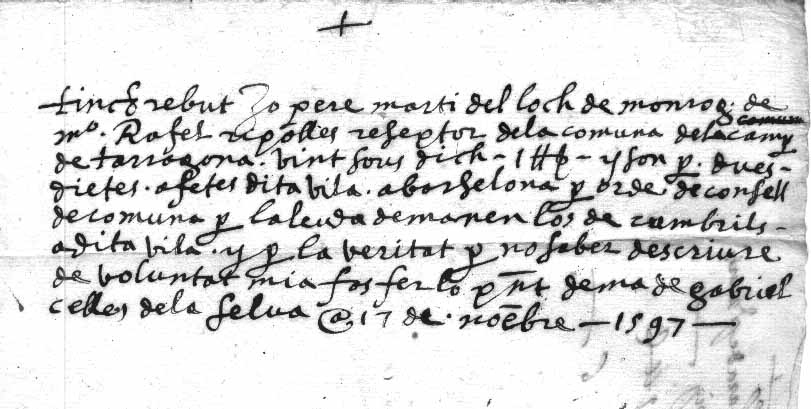 +
tinch rebut Jo pere marti del loch de monrog. de
mº. Rafel ripolles reseptor dela comuna dela camp
de tarragona. vint sous dich - 1 ₶ - y son p. dues -
dietes. a fetes dita vila. a barselona p orde. de consell
de comuna p la leuda demanen los de cambrils -
a dita vila. y p la veritat p no saber descriure
de voluntat mia fas fer lo pñt de ma de gabriel
celles dela selva @ 17 de. noēbre — 1597 —